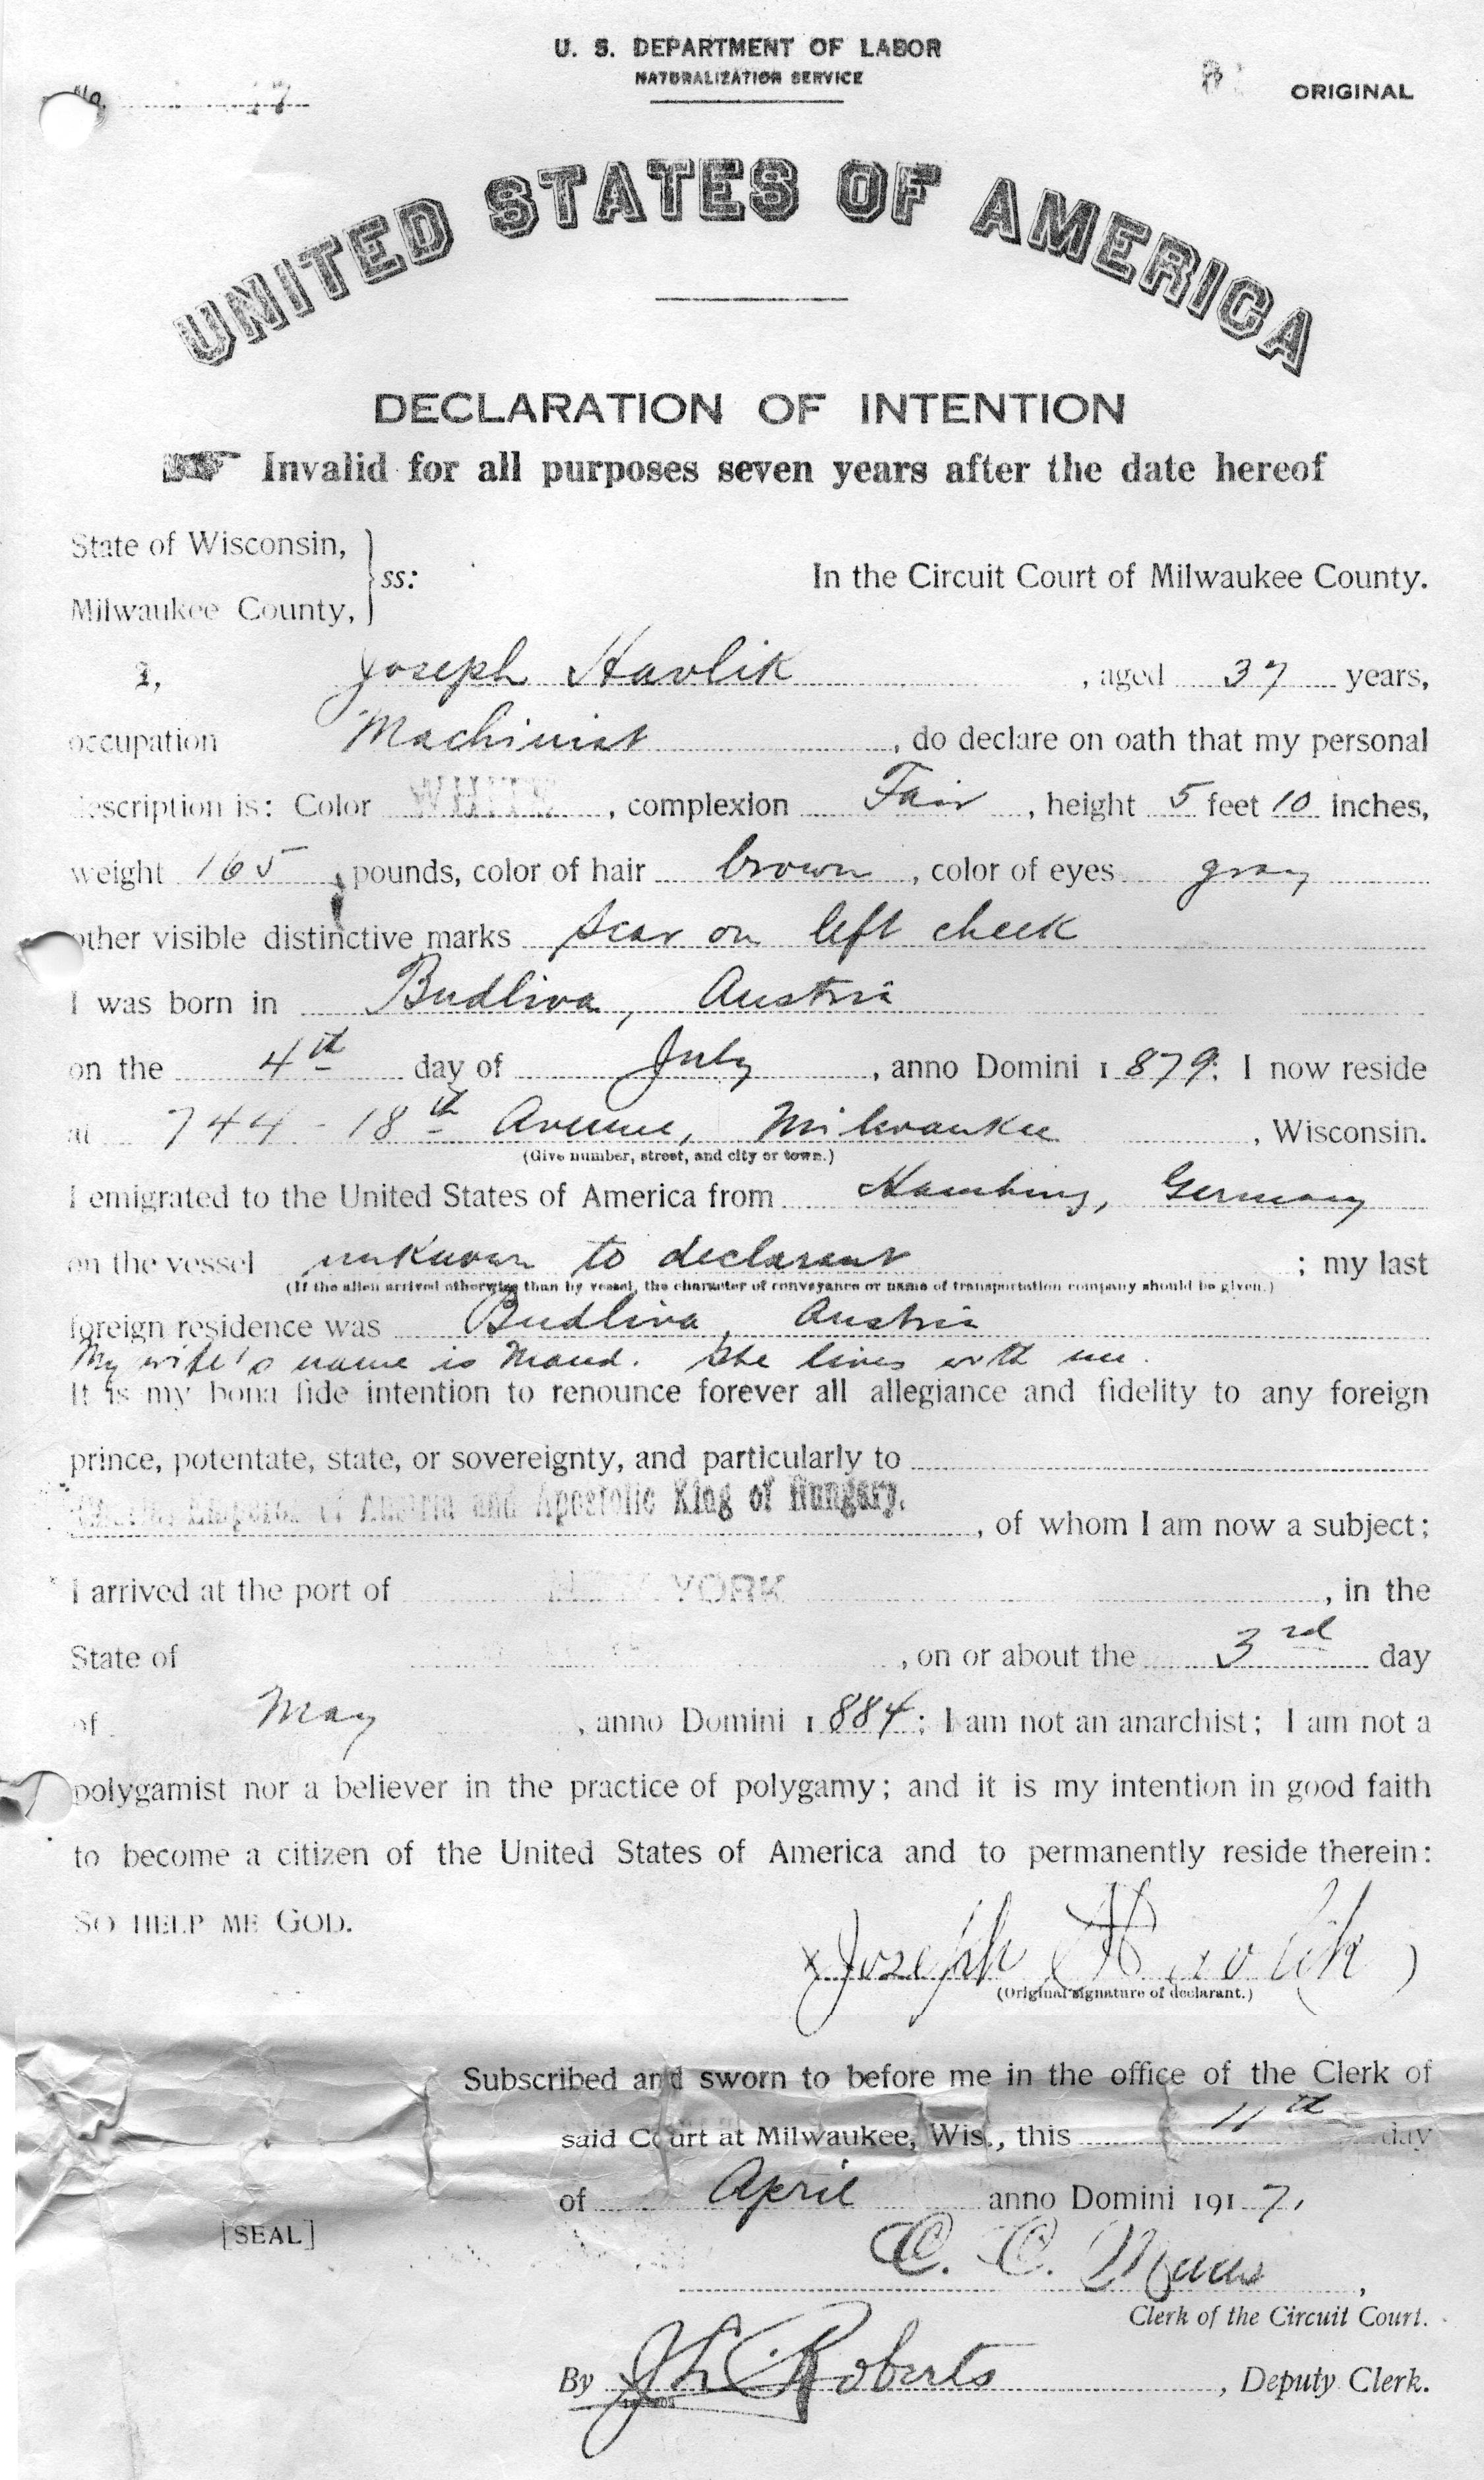 U. S. DEPARTMENT OF LABOR
NATURALIZATION SERVICE
No. 17
ORIGINAL
UNITED STATES OF AMERICA
DECLARATION OF INTENTION
Invalid for all purposes seven years after the date hereof
State of Wisconsin,
Milwaukee County, ss:
In the Circuit Court of Milwaukee County.
I, Joseph Havlik, aged 37 years,
occupation Machinist, do declare on oath that my personal
description is: Color WHITE, complexion Fair, height 5 feet 10 inches,
weight 165 pounds, color of hair brown, color of eyes gray
other visible distinctive marks scar on left cheek
I was born in Budliva, Austria
on the 4th day of July, anno Domini 1879; I now reside
at 744 - 18th Avenue, Milwaukee, Wisconsin.
(Give number, street, and city or town.)
I emigrated to the United States of America from Hamburg, Germany
on the vessel unknown to declarant; my last
(If the alien arrived otherwise than by vessel, the character of conveyance or name of transportation company should be given.)
foreign residence was Budliva, Austria
My wife's name is Maud. She lives with me.
It is my bona fide intention to renounce forever all allegiance and fidelity to any foreign
prince, potentate, state, or sovereignty, and particularly to
Charles, Emperor of Austria and Apostolic King of Hungary.
, of whom I am now a subject;
I arrived at the port of NEW YORK, in the
State of , on or about the 3rd day
of May, anno Domini 1884; I am not an anarchist; I am not a
polygamist nor a believer in the practice of polygamy; and it is my intention in good faith
to become a citizen of the United States of America and to permanently reside therein:
SO HELP ME GOD.
x Joseph Havlik
(Original signature of declarant.)
Subscribed and sworn to before me in the office of the Clerk of
said Court at Milwaukee, Wis., this 11th day
of April anno Domini 1917.
[SEAL]
C. C. Maas,
Clerk of the Circuit Court.
By Roberts, Deputy Clerk.